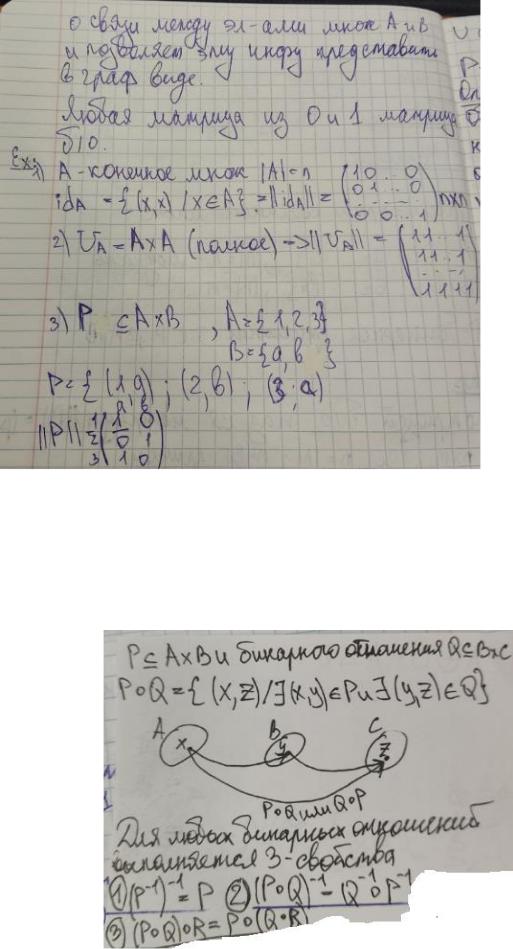 о связи между эл-ами множ A и B
и позволяет эту инфу представить
в граф виде.
Любая матрица из 0 и 1 матрица
б/о.
Ex: 1) A - конечное множ |A|=n
id_A = {(x,x) / x∈A} = ||id_A|| = (1 0 .. 0
0 1 .. 0
. . . . .
0 0 .. 1) n×n
2) U_A = A×A (полное) → ||U_A|| = (1 1 .. 1
1 1 .. 1
. . . . .
1 1 1 1)
3) P ⊆ A×B , A={1,2,3}
B={a,b }
P={(1,a) ; (2,b) ; (3;a)
a b
||P|| = 1 (1 0
2 0 1
3 1 0)
P⊆A×B и бинарного отношения Q⊆B×C
P∘Q={(x,z)/∃(x,y)∈P и ∃(y,z)∈Q}
A B C
x y z
P∘Q или Q∘P
Для любых бинарных отношений
выполняется 3-свойства
① (P⁻¹)⁻¹ = P ② (P∘Q)⁻¹ – Q⁻¹∘P⁻¹
③ (P∘Q)∘R = P∘(Q∘R)